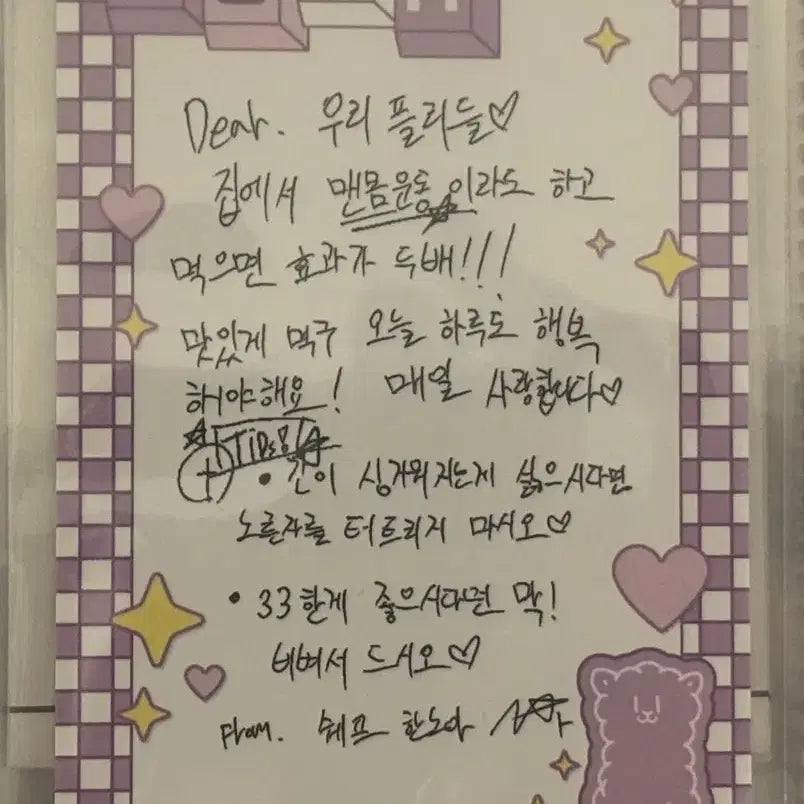 Dear. 우리 플리들♡
집에서 맨몸운동이라도 하고
먹으면 효과가 두배!!!
맛있게 먹구 오늘 하루도 행복
해야해요! 매일 사랑합니다♡
☆TiPs!☆
+ • 간이 싱거워지는게 싫으시다면
노른자를 터트리지 마시오♡
• 33한게 좋으시다면 막!
비벼서 드시오♡
From. 쉐프 한노아